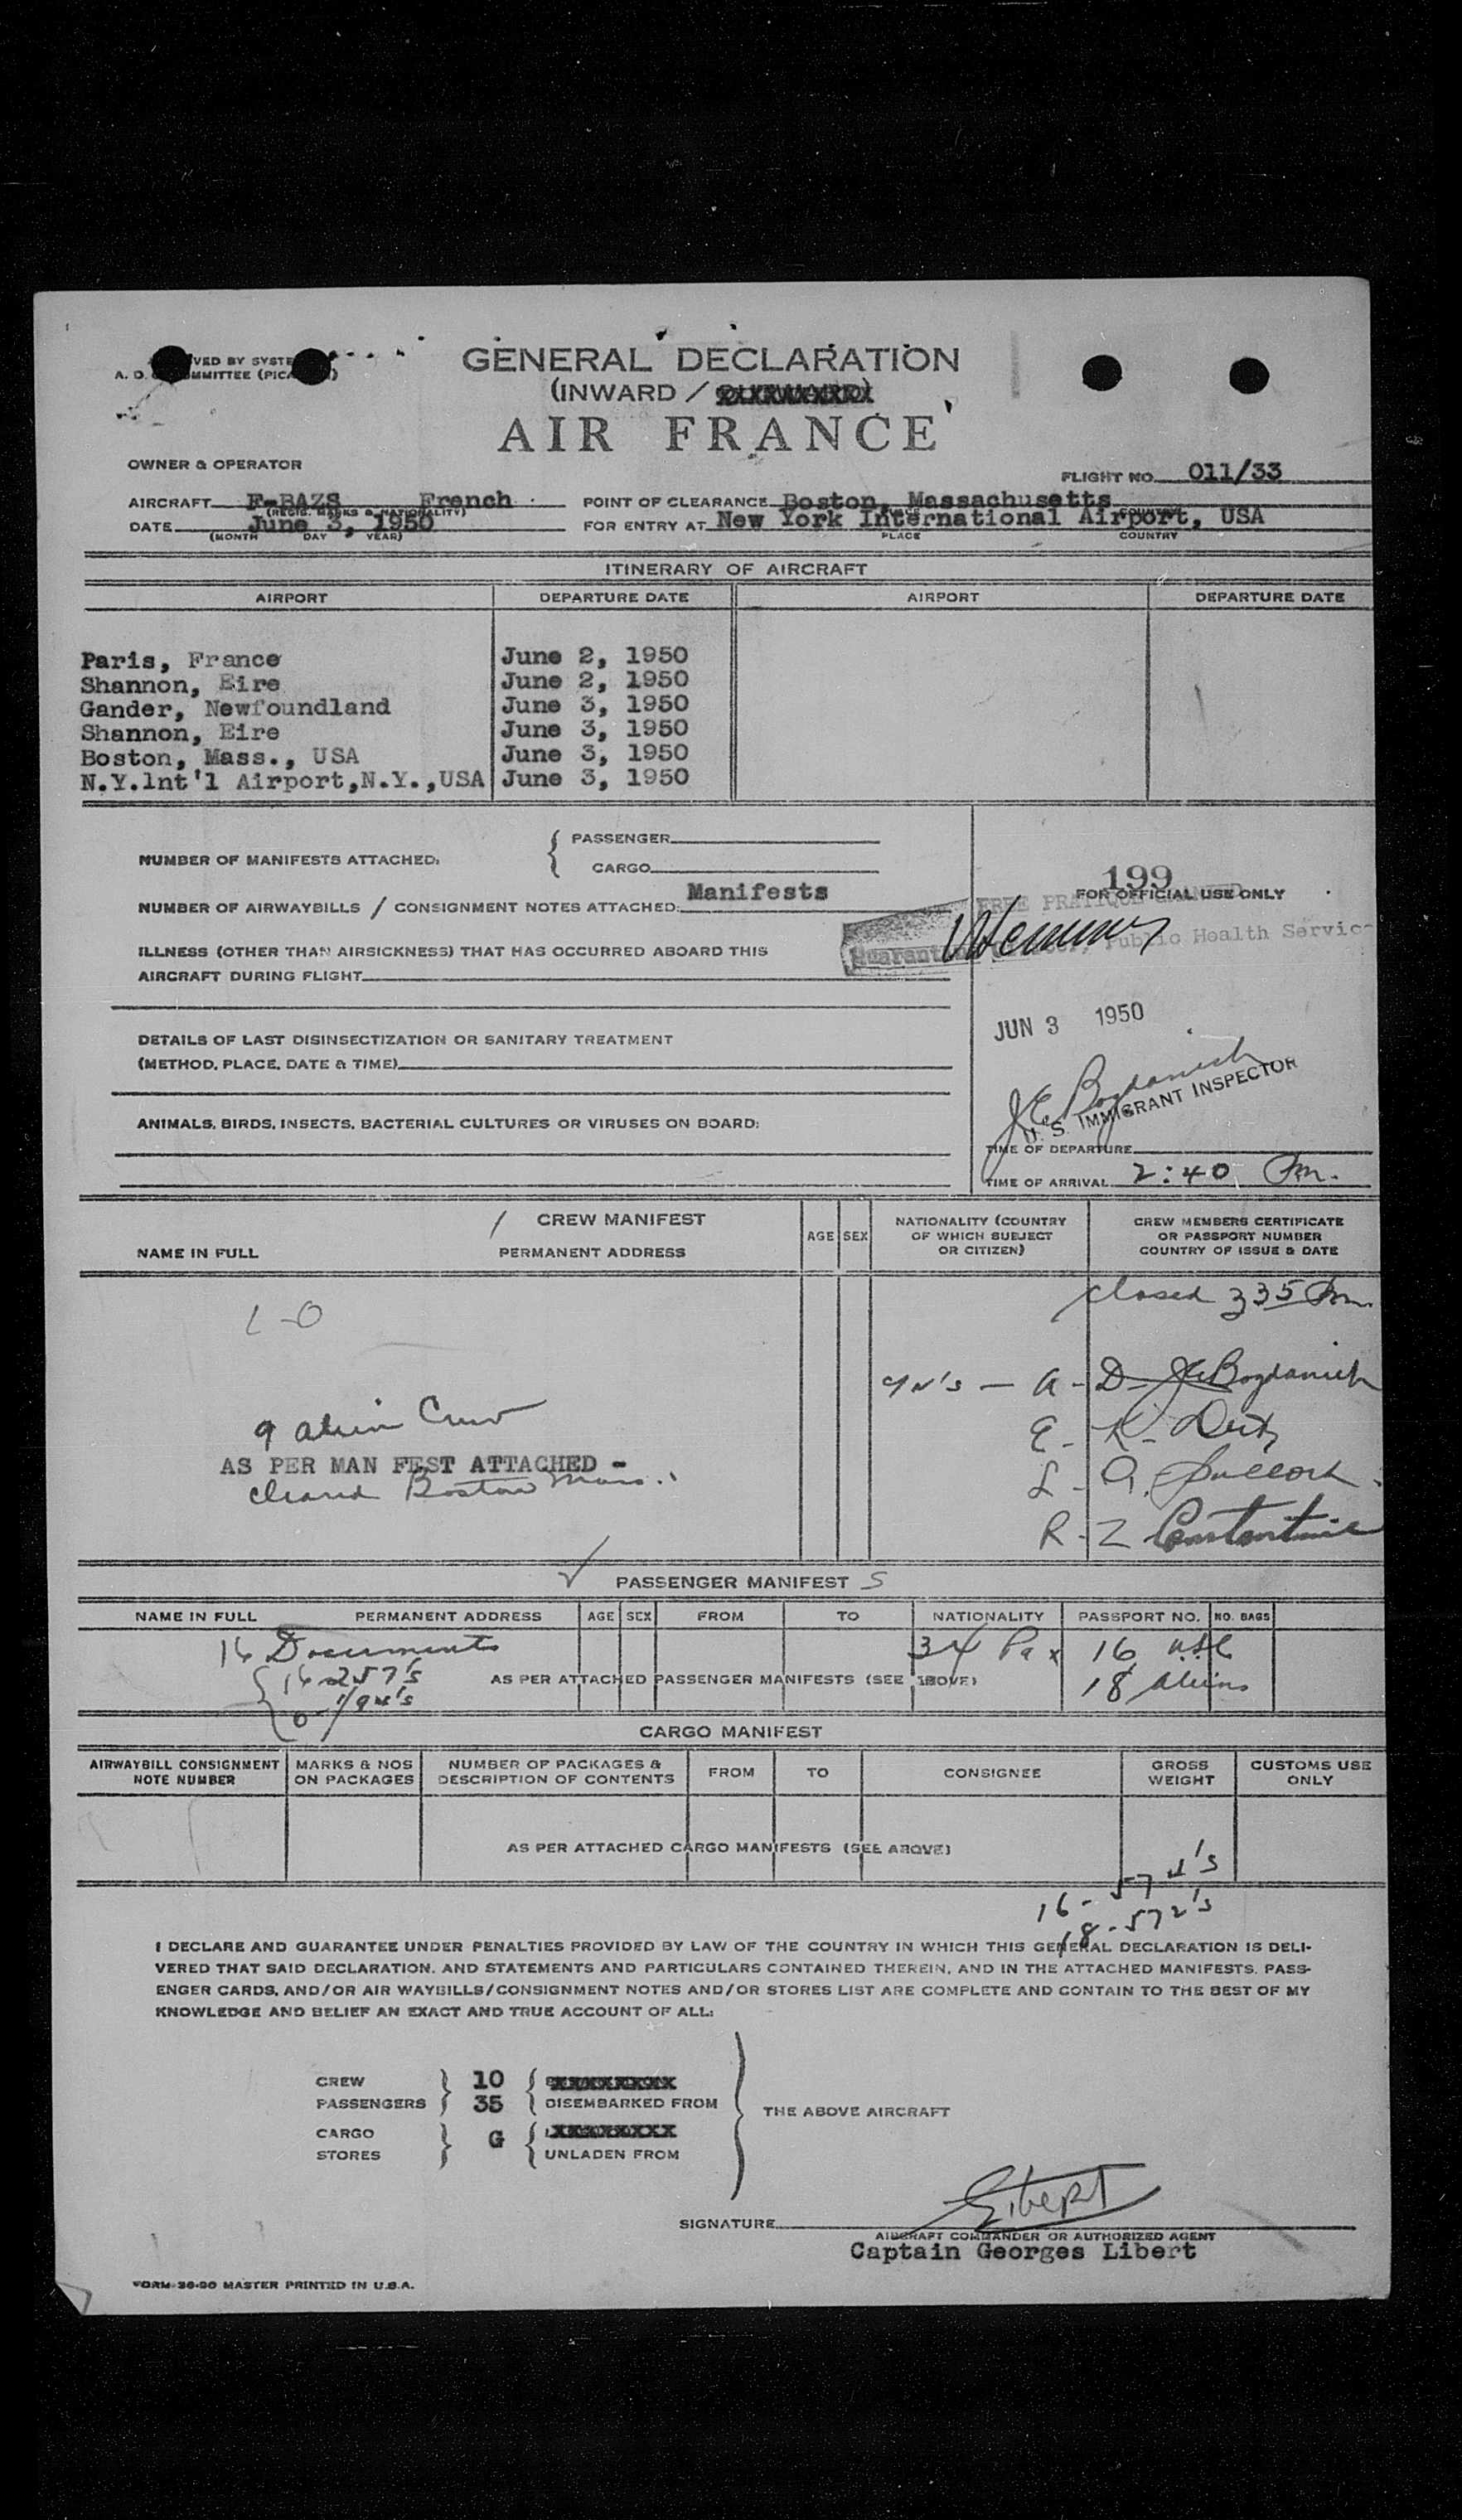 GENERAL DECLARATION
(INWARD /
AIR FRANCE
OWNER & OPERATOR
FLIGHT NO. 011/33
AIRCRAFT F-BAZS French
(REGIS. MARKS & NATIONALITY)
POINT OF CLEARANCE Boston, Massachusetts
DATE June 3, 1950
(MONTH DAY YEAR)
FOR ENTRY AT New York International Airport, USA
PLACE COUNTRY
ITINERARY OF AIRCRAFT
AIRPORT DEPARTURE DATE AIRPORT DEPARTURE DATE
Paris, France June 2, 1950
Shannon, Eire June 2, 1950
Gander, Newfoundland June 3, 1950
Shannon, Eire June 3, 1950
Boston, Mass., USA June 3, 1950
N.Y.lnt'l Airport,N.Y.,USA June 3, 1950
NUMBER OF MANIFESTS ATTACHED:
PASSENGER
CARGO
NUMBER OF AIRWAYBILLS / CONSIGNMENT NOTES ATTACHED: Manifests
ILLNESS (OTHER THAN AIRSICKNESS) THAT HAS OCCURRED ABOARD THIS
AIRCRAFT DURING FLIGHT
DETAILS OF LAST DISINSECTIZATION OR SANITARY TREATMENT
(METHOD, PLACE, DATE & TIME)
ANIMALS, BIRDS, INSECTS, BACTERIAL CULTURES OR VIRUSES ON BOARD:
199
FOR OFFICIAL USE ONLY
Public Health Service
JUN 3 1950
J E Bogdanich
U. S. IMMIGRANT INSPECTOR
TIME OF DEPARTURE
TIME OF ARRIVAL 2:40 Pm.
CREW MANIFEST
NAME IN FULL PERMANENT ADDRESS AGE SEX
NATIONALITY (COUNTRY
OF WHICH SUBJECT
OR CITIZEN)
CREW MEMBERS CERTIFICATE
OR PASSPORT NUMBER
COUNTRY OF ISSUE & DATE
closed 335 Pm.
1-0
A - D - Bogdanich
E - K -
L -
R - Z Constantine
9 alien Crew
AS PER MAN FEST ATTACHED -
Boston Mass.
PASSENGER MANIFEST S
NAME IN FULL PERMANENT ADDRESS AGE SEX FROM TO NATIONALITY PASSPORT NO. NO. BAGS
16 Documents 34 Pax 16 USC
16-257's AS PER ATTACHED PASSENGER MANIFESTS (SEE ABOVE) 18 Aliens
CARGO MANIFEST
AIRWAYBILL CONSIGNMENT
NOTE NUMBER
MARKS & NOS
ON PACKAGES
NUMBER OF PACKAGES &
DESCRIPTION OF CONTENTS
FROM TO CONSIGNEE
GROSS
WEIGHT
CUSTOMS USE
ONLY
AS PER ATTACHED CARGO MANIFESTS (SEE ABOVE)
18-572's
I DECLARE AND GUARANTEE UNDER PENALTIES PROVIDED BY LAW OF THE COUNTRY IN WHICH THIS GENERAL DECLARATION IS DELI-
VERED THAT SAID DECLARATION, AND STATEMENTS AND PARTICULARS CONTAINED THEREIN, AND IN THE ATTACHED MANIFESTS, PASS-
ENGER CARDS, AND/OR AIR WAYBILLS/CONSIGNMENT NOTES AND/OR STORES LIST ARE COMPLETE AND CONTAIN TO THE BEST OF MY
KNOWLEDGE AND BELIEF AN EXACT AND TRUE ACCOUNT OF ALL:
CREW 10
PASSENGERS 35 DISEMBARKED FROM
THE ABOVE AIRCRAFT
CARGO G
STORES UNLADEN FROM
SIGNATURE
AIRCRAFT COMMANDER OR AUTHORIZED AGENT
Captain Georges Libert
FORM-36-00 MASTER PRINTED IN U.S.A.